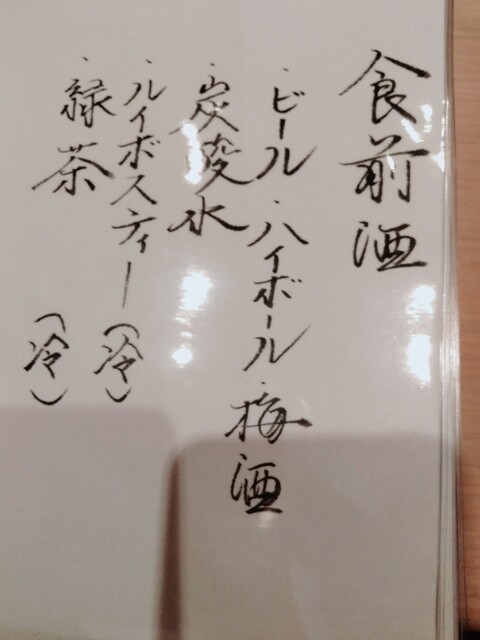 食前酒
・ビール・ハイボール・梅酒
・炭酸水
・ルイボスティー(冷)
・緑茶 (冷)